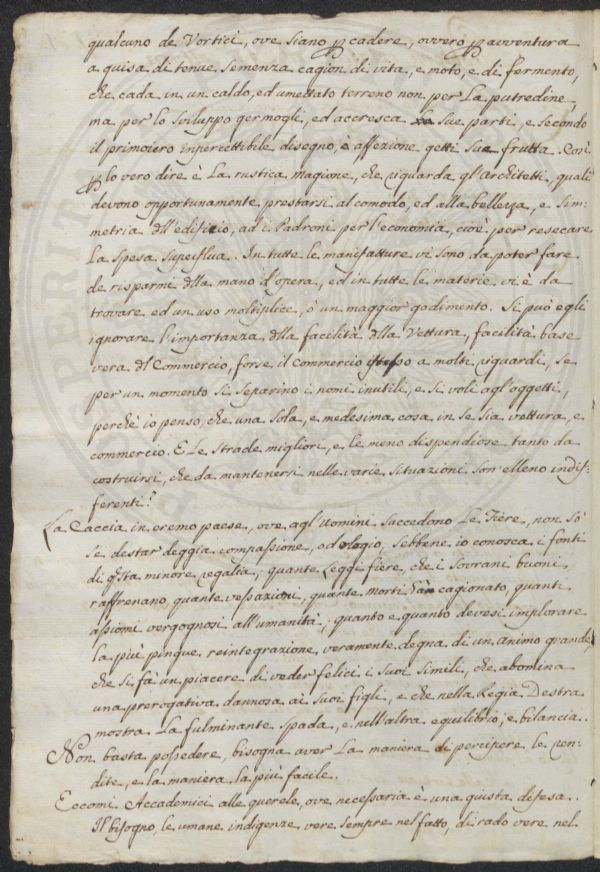 qualcuno de Vortici, ove siano p cadere, ovvero p avventura
a guisa di tenue semenza cagion di vita, e moto, e di fermento,
che cada in un caldo, ed umettato terreno non per la putredine,
ma per lo sviluppo germogli, ed accresca sue parti, e secondo
il primoiero impercettibile disegno, è affezione getti sue frutta. Così
p lo vero dire è La rustica magione, che riguarda gl'Architetti, quali
devono opportunamente prestarsi al comodo, ed alla bellezza, e Sim-
metria dll'edificio, ad i Padroni per l'economia, cioè per resecare
La spesa superflua. In tutte le manifatture vi sono da poter fare
de risparmi dlla mano d'opera, ed in tutte le materie vi è da
trovare ed un uso moltiplice, ò un maggior godimento. Si può egli
ignorare l'importanza dlla facilità dlla Vettura, facilità base
vera dl Commercio, forse il Commercio stesso a molti riguardi, se
per un momento si separino i nomi inutili, e si voli agl'oggetti,
perche io penso, che una sola, e medesima cosa in se sia vettura, e
commercio. E Le strade migliori, e le meno dispendiose tanto da
costruirsi, che da mantenersi nelle varie situazioni son'elleno indif-
ferenti?
La Caccia in eremo paese, ove agl'uomini succedono Le Fiere, non sò
se destar deggia compassione, od elogio, sebbene io conosca i fonti
di qsta minore regalìa, quante Legge fiere, che i Sovrani buoni
raffrenano, quante vessazioni, quante morti han cagionato, quanti
assiomi vergognosi all'umanità; quanto e quanto devesi implorare
la più pingue reintegrazione veramente degna di un animo grande,
che si fà un piacere di veder felici i suoi simili, che abomina
una prerogativa dannosa ai suoi figli, e che nella Regia Destra
mostra La fulminante spada, e nell'altra equilibrio, e bilancia.
Non basta possedere, bisogna aver La maniera di percipere le ren-
dite, e la maniera la più facile.
Eccomi Accademici alle querele, ove necessaria è una giusta difesa.
Il bisogno, le umane indigenze vere sempre nel fatto, di rado vere nel